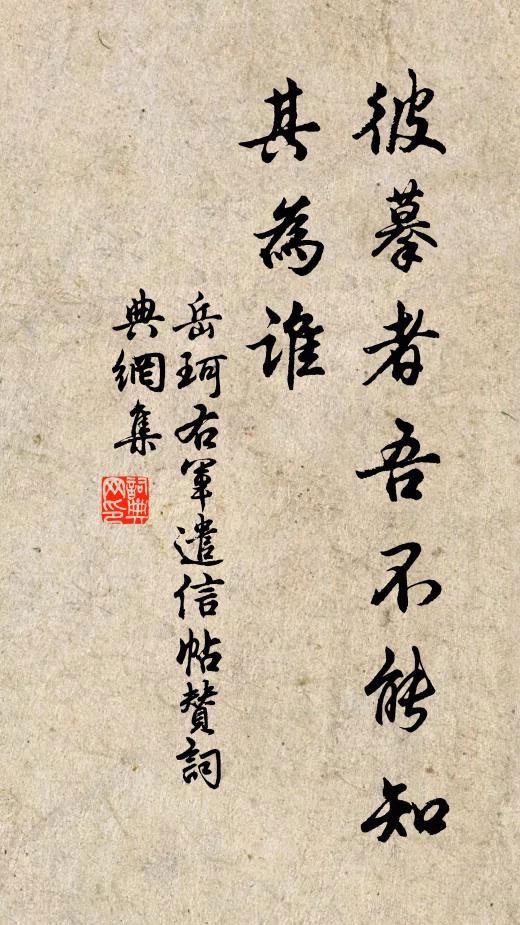 彼摹者吾不能知
其為誰
岳珂右軍遣信帖贊詞
典網集
詞典
网印